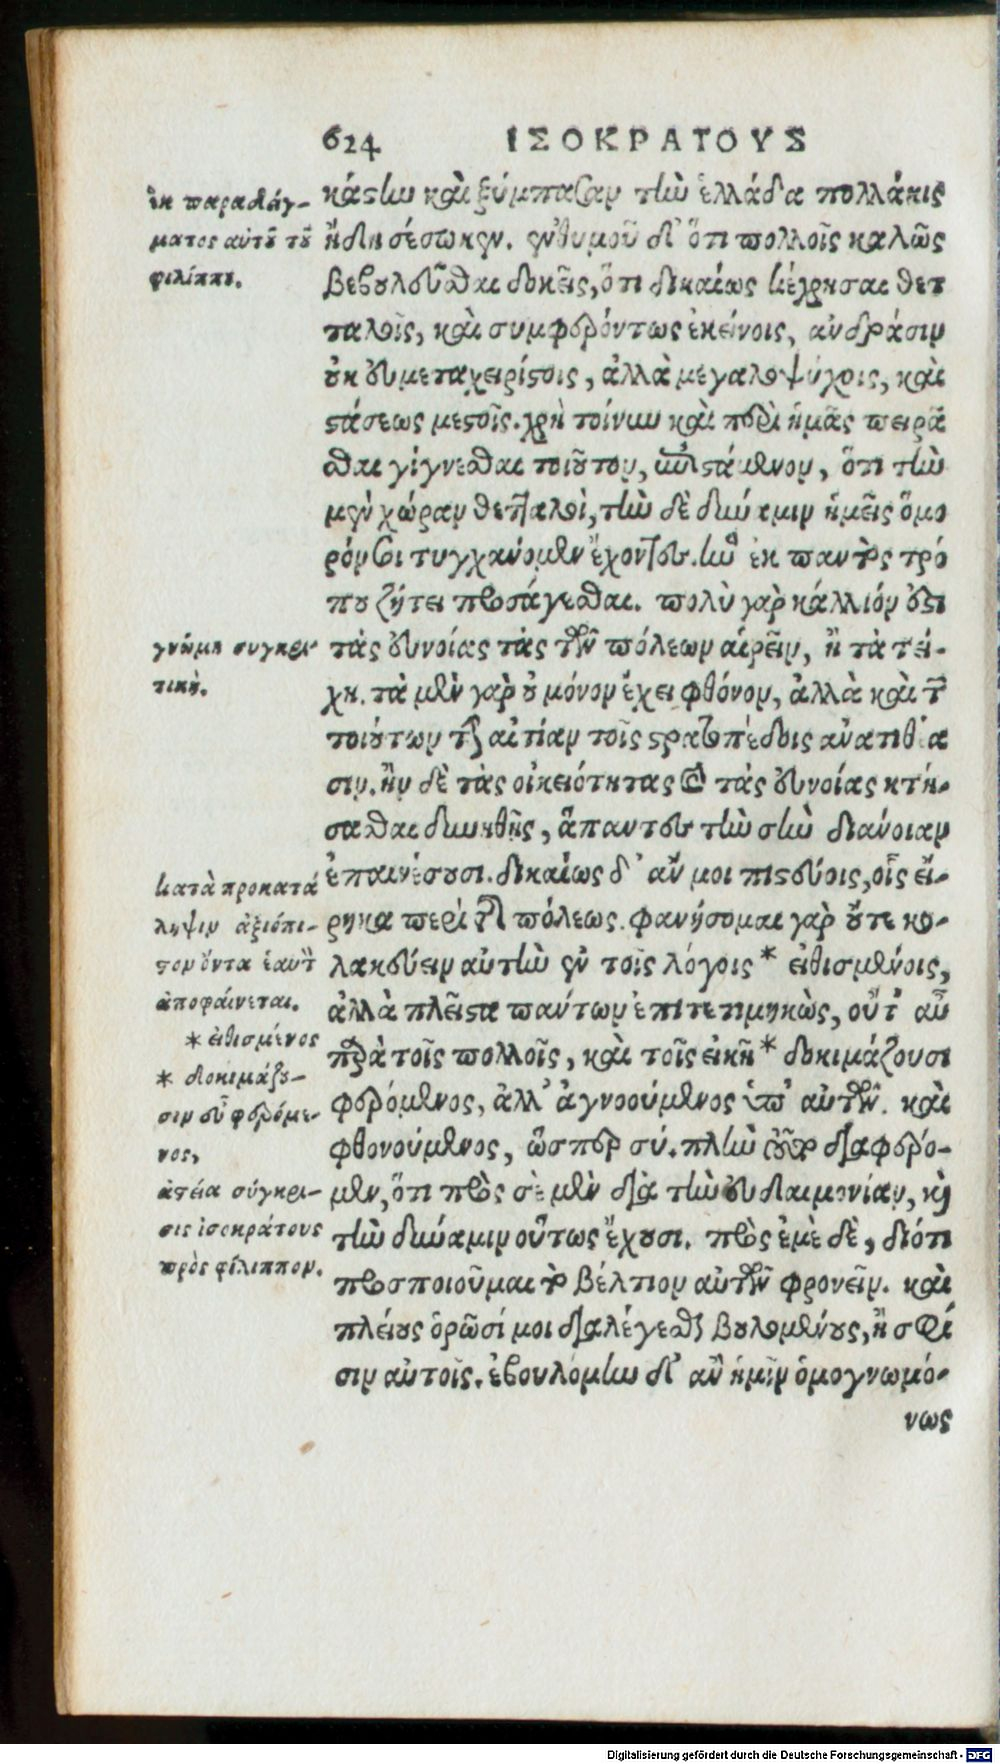 624 ΙΣΟΚΡΑΤΟΥΣ
κάστην καὶ ξύμπασαν τὴν ἑλλάδα πολλάκις
ἤδη σέσωκεν. ἐνθυμοῦ δ' ὅτι πολλοῖς καλῶς
βεβουλεῦσθαι δοκεῖς, ὅτι δικαίως κέχρησαι θετ
ταλοῖς, καὶ συμφερόντως ἐκείνοις, ἀνδράσιν
οὐκ εὐμεταχειρίστοις, ἀλλὰ μεγαλοψύχοις, καὶ
στάσεως μεστοῖς. χρὴ τοίνυν καὶ περὶ ἡμᾶς πειρᾶ
σθαι γίγνεσθαι τοιοῦτον, ἐπιστάμενον, ὅτι τὴν
μὲν χώραν θετταλοὶ, τὴν δὲ δύναμιν ἡμεῖς ὅμο
ρόν σοι τυγχάνομεν ἔχοντες. ἣν ἐκ παντὸς τρό
που ζήτει προσάγεσθαι. πολὺ γὰρ κάλλιόν ἐστι
τὰς εὐνοίας τὰς τῶν πόλεων αἱρεῖν, ἢ τὰ τεί-
χη. τὰ μὲν γὰρ οὐ μόνον ἔχει φθόνον, ἀλλὰ καὶ τῶν
τοιούτων τὴν αἰτίαν τοῖς στρατοπέδοις ἀνατιθέα
σιν. ἢν δὲ τὰς οἰκειότητας καὶ τὰς εὐνοίας κτή-
σασθαι δυνηθῇς, ἅπαντες τὴν σὴν διάνοιαν
ἐπαινέσουσι. δικαίως δ' ἄν μοι πιστεύοις, οἷς εἴ-
ρηκα περὶ τῆς πόλεως. φανήσομαι γὰρ οὔτε κο-
λακεύειν αὐτὴν ἐν τοῖς λόγοις * εἰθισμένοις,
ἀλλὰ πλεῖστα πάντων ἐπιτετιμηκὼς, οὔτ' εὖ
παρὰ τοῖς πολλοῖς, καὶ τοῖς εἰκῆ * δοκιμάζουσι
φερόμενος, ἀλλ' ἀγνοούμενος ὑπ' αὐτῶν. καὶ
φθονούμενος, ὥσπερ σύ. πλὴν τοσοῦτον διαφέρο-
μεν, ὅτι πρὸς σὲ μὲν διὰ τὴν εὐδαιμονίαν, καὶ
τὴν δύναμιν οὕτως ἔχουσι. πρὸς ἐμὲ δὲ, διότι
προσποιοῦμαι τὸ βέλτιον αὐτῶν φρονεῖν. καὶ
πλείους ὁρῶσί μοι διαλέγεσθαι βουλομένους, ἢ σφί
σιν αὐτοῖς. ἐβουλόμην δ' ἂν ἡμῖν ὁμογνωμό-
νως
ἐκ παραδείγ-
ματος αὐτοῦ τοῦ
φιλίππου.
γνώμη συγκρι
τικὴ.
κατὰ προκατά
ληψιν ἀξιόπι-
στον ὄντα ἑαυτὸν
ἀποφαίνεται.
* εἰθισμένος
* δοκιμάζου-
σιν εὖ φερόμε-
νος,
ἀστεία σύγκρι-
σις ἰσοκράτους
πρὸς φίλιππον.
Digitalisierung gefördert durch die Deutsche Forschungsgemeinschaft - DFG